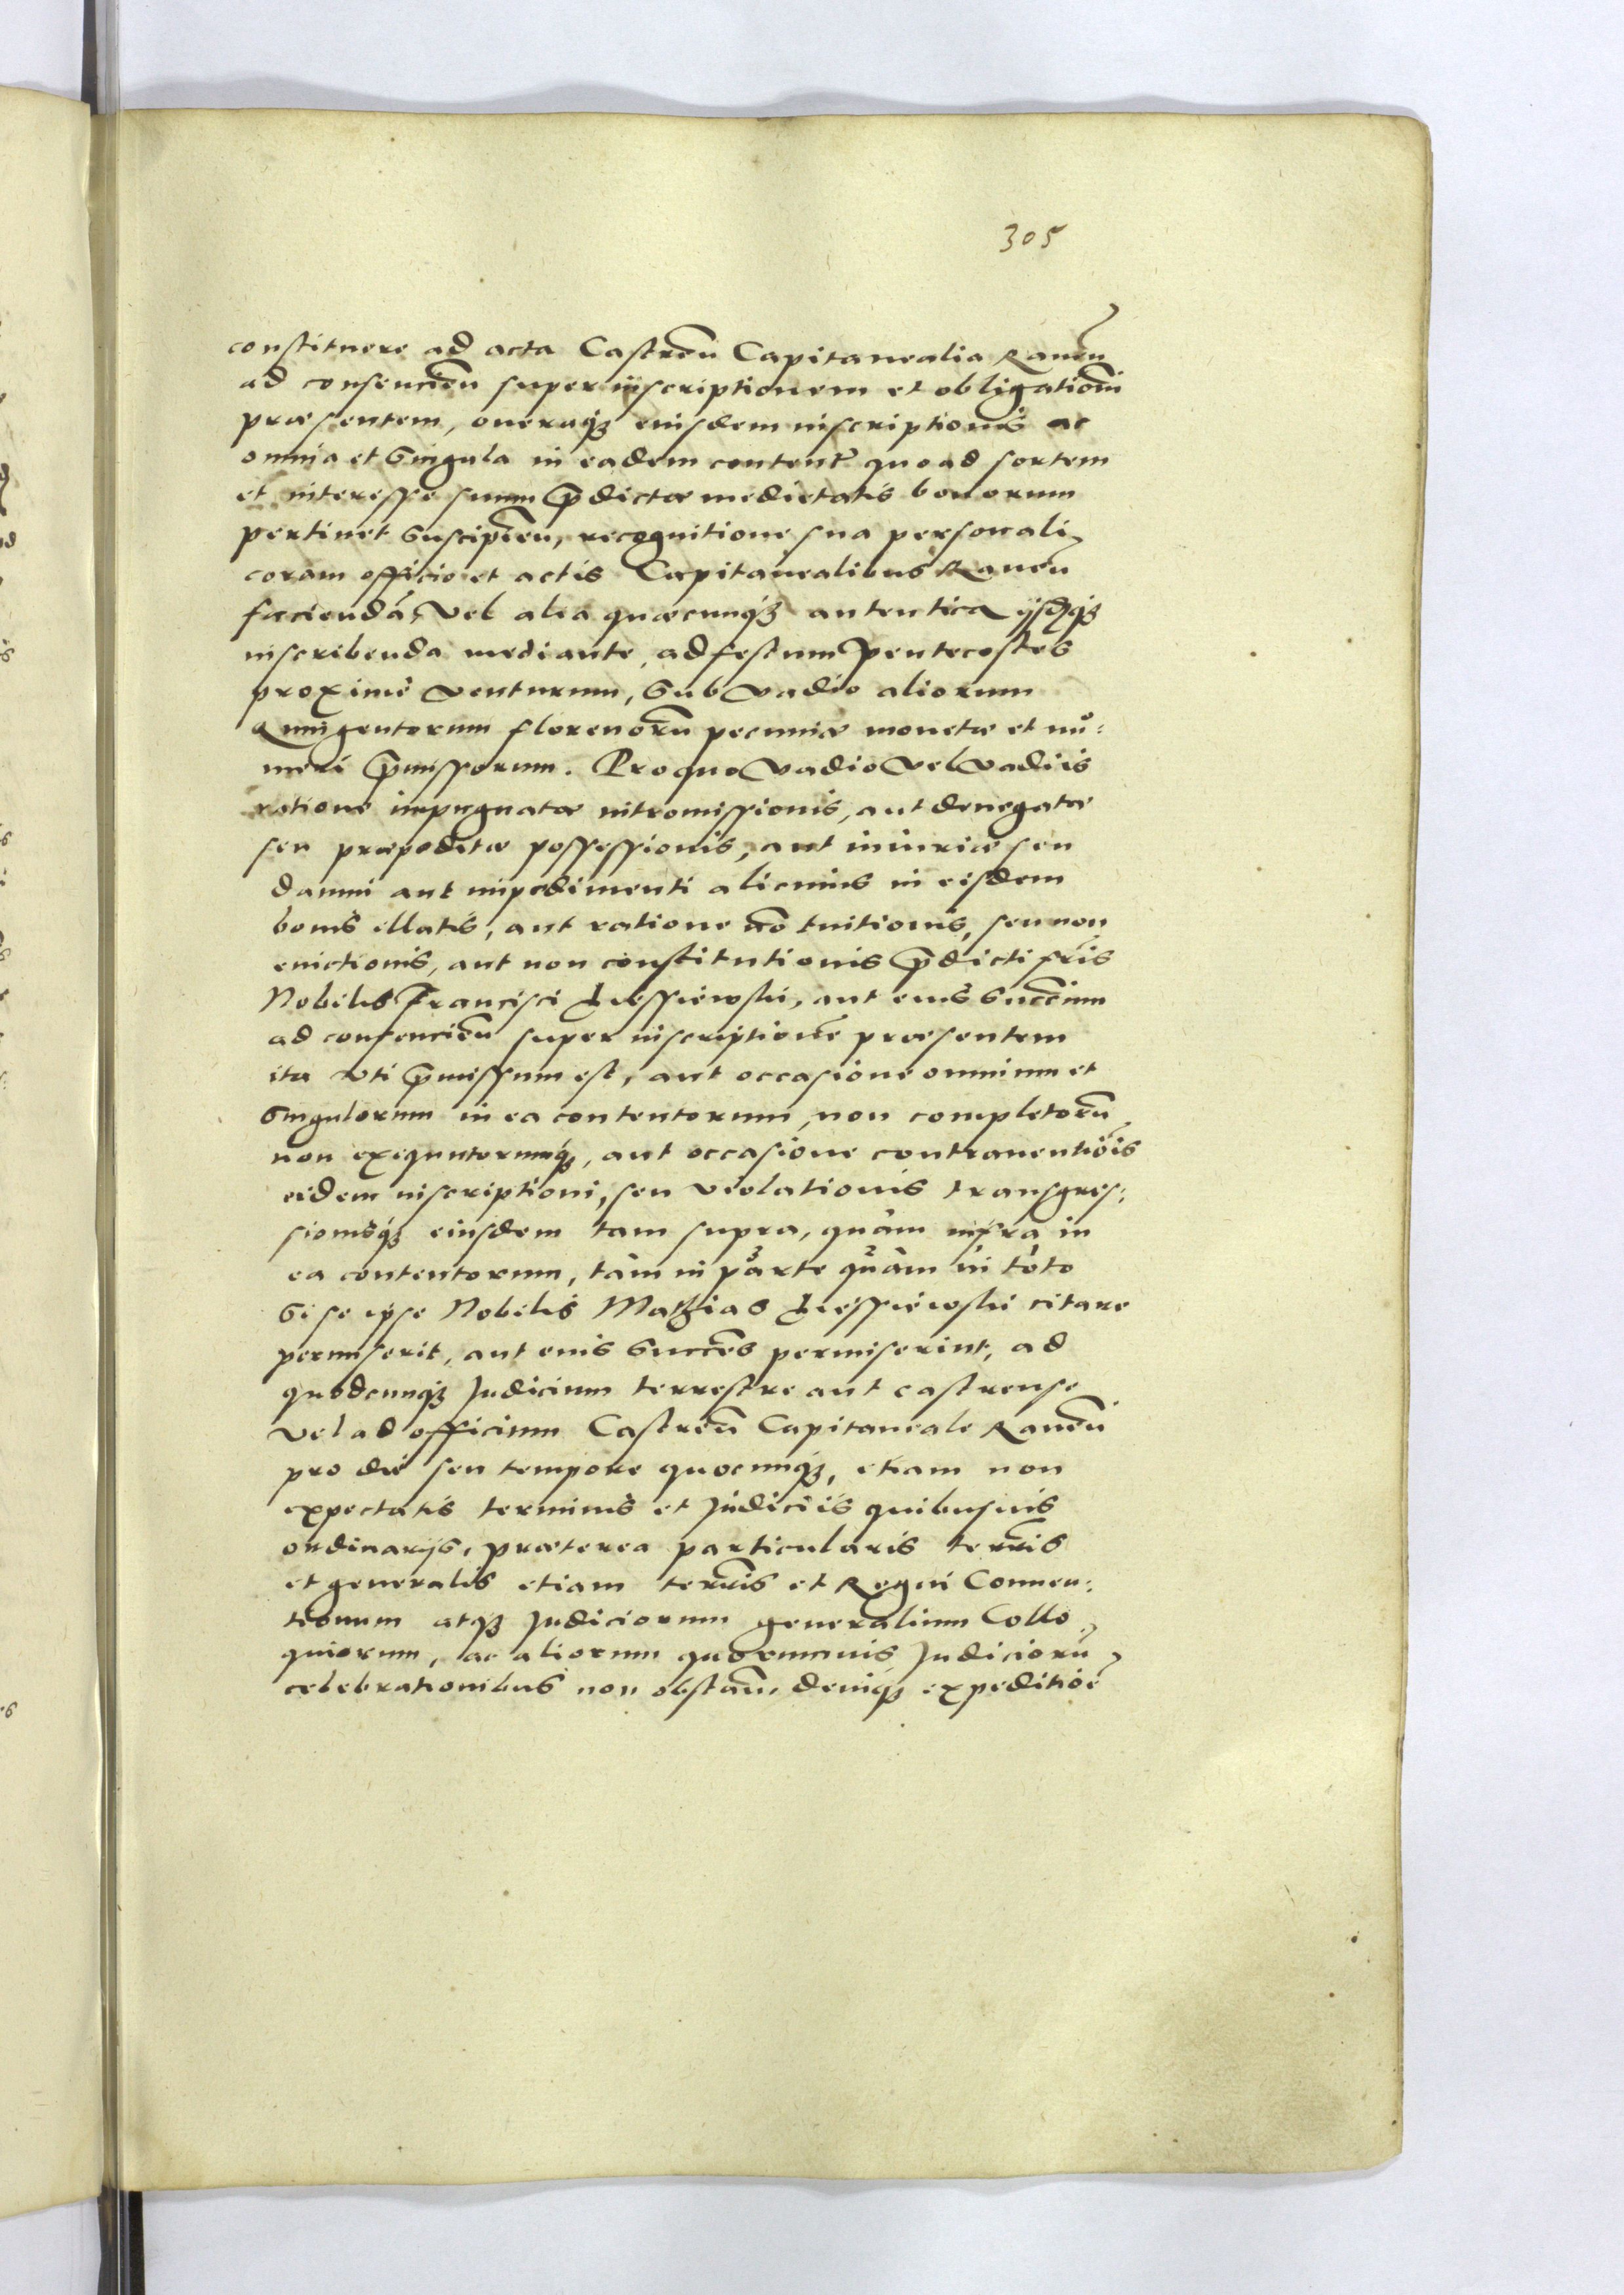 305
constituere ad acta Castreñ Capitanealia Raueñ
ad consencieñ super inscriptionem et obligationi
præsentem, oneraq₃ eiusdem inscriptionis ac
omnia et singula in eadem content̃ quoad sortem
et interesse suum p̄dictæ medietatis bonorum
pertinet suscipieñ, recognitione sua personali
coram officio et actis Capitanealibus Raueñ
facienda, vel alia quæcunq₃ autentica ijsdq₃
inscribenda mediante, ad festum Pentecostes
proxime venturum, sub vadio aliorum
Quingentorum florenorũ pecuniæ monetæ et nu:
meri p̄missorum. Pro quo vadio vel vadiis
ratione impugnatæ intromissionis, aut denegatæ
seu præpeditæ possessionis, aut iniuriæ seu
damni aut impedimenti alicuius in eisdem
bonis illatis, aut ratione nõ tuitionis, seu non
euictionis, aut non constitutionis p̄dicti fr̃is
Nobilis Francisci Liessiewski, aut eius succ̃um
ad consencieñ super inscriptionẽ præsentem
ita vti p̄missum est, aut occasione omnium et
singulorum in ea contentorum, non completorũ
non exequutorumq₃, aut occasione contrauentiõis
eidem inscriptioni, seu violationis transgres:
sionisq₃ eiusdem tam supra, quàm infra in
ea contentorum, tàm in parte quàm in toto
si se ipse Nobilis Mathias Liessiewski citare
permiserit, aut eius succ̃es permiserint, ad
quodcunq₃ Judicium terrestre aut castrense
vel ad officium Castreñ Capitaneale Raueñ
pro die seu tempore quocunq₃, etiam non
expectatis terminis et Judiciis quibusuis
ordinarijs, præterea particularis terr̃is
et generalis etiam terr̃is et Regni Conuen:
tionum atq₃ Judiciorum generalium Collo
quiorum, ac aliorum quorumuis Judiciorũ
celebrationibus non obstañ, deniq₃ expeditiõe